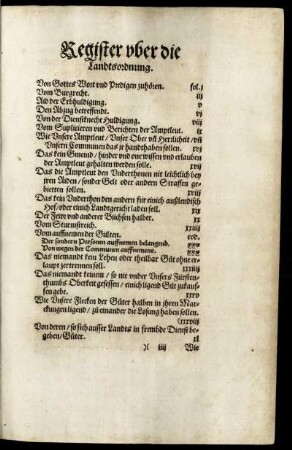 Register vber die
Landtsordnung.
Von Gottes Wort vnd Predigen zuhören. fol. j
Vom Burgrecht. iij
Aid der Erbhuldigung. v
Den Abzug betreffendt. vj
Von der Dienstknecht Huldigung. viij
Vom Suplicieren vnd Berichten der Amptleut. ix
Wie Vnsere Amptleut / Vnser Ober vn̄ Herrlicheit / vn̄
Vnsern Communen das jr handthaben sollen. xvj
Das kein Gmeind / hinder vnd one wissen vnd erlauben
der Amptleut gehalten werden solle. xvij
Das die Amptleut den Vnderthonen nit leichtlich bey
jren Aiden / sonder Gelt oder andern Straffen ge-
bietten sollen. xviij
Das kein Vnderthon den andern für einich außlendisch
Hof / oder einich Landtgericht laden soll. xix
Der Fewr vnd anderer Büchsen halber. xx
Vom Sturmstreich. xxiiij
Vom auffnemen der Gülten. eod.
Der sondern Personen auffnemen belangend. xxx
Von wegen der Communen auffnemens. xxx
Das niemandt kein Lehen oder theilbar Güt ohne er-
laupt zertrennen soll. xxxiiij
Das niemandt keinem / so nit vnder Vnsers Fürsten-
thumbs Oberkeit gesessen / einich ligend Güt zukauf-
fen gebe. xxxv
Wie Vnsere Flecken der Güter halben in jhren Mar-
ckungen ligend / zu einander die Losung haben sollen.
(xxxviij
Von denen / so sich ausser Landts in frembde Dienst be-
geben / Güter. xl
)( iiij Wie